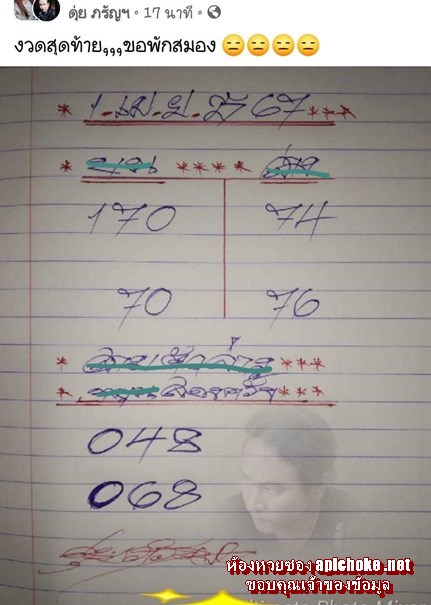 ดุ่ย ภรัญฯ · 17 นาที ·
งวดสุดท้าย,,,ขอพักสมอง 😑😑😑😑
* 1.เม.ย.67***
* บน **** ล่าง
170 74
70 76
* ***
* สองครั้ง***
048
068
ห้องหวยซอง aplchoke.net
ขอบคุณเจ้าของข้อมูล